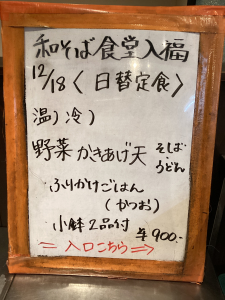 和そば食堂入福
12/18 〈日替定食〉
温) 冷)
野菜かきあげ天 そば うどん
ふりかけごはん
(かつお)
小鉢2品付 ¥900-
= 入口こちら ⇒